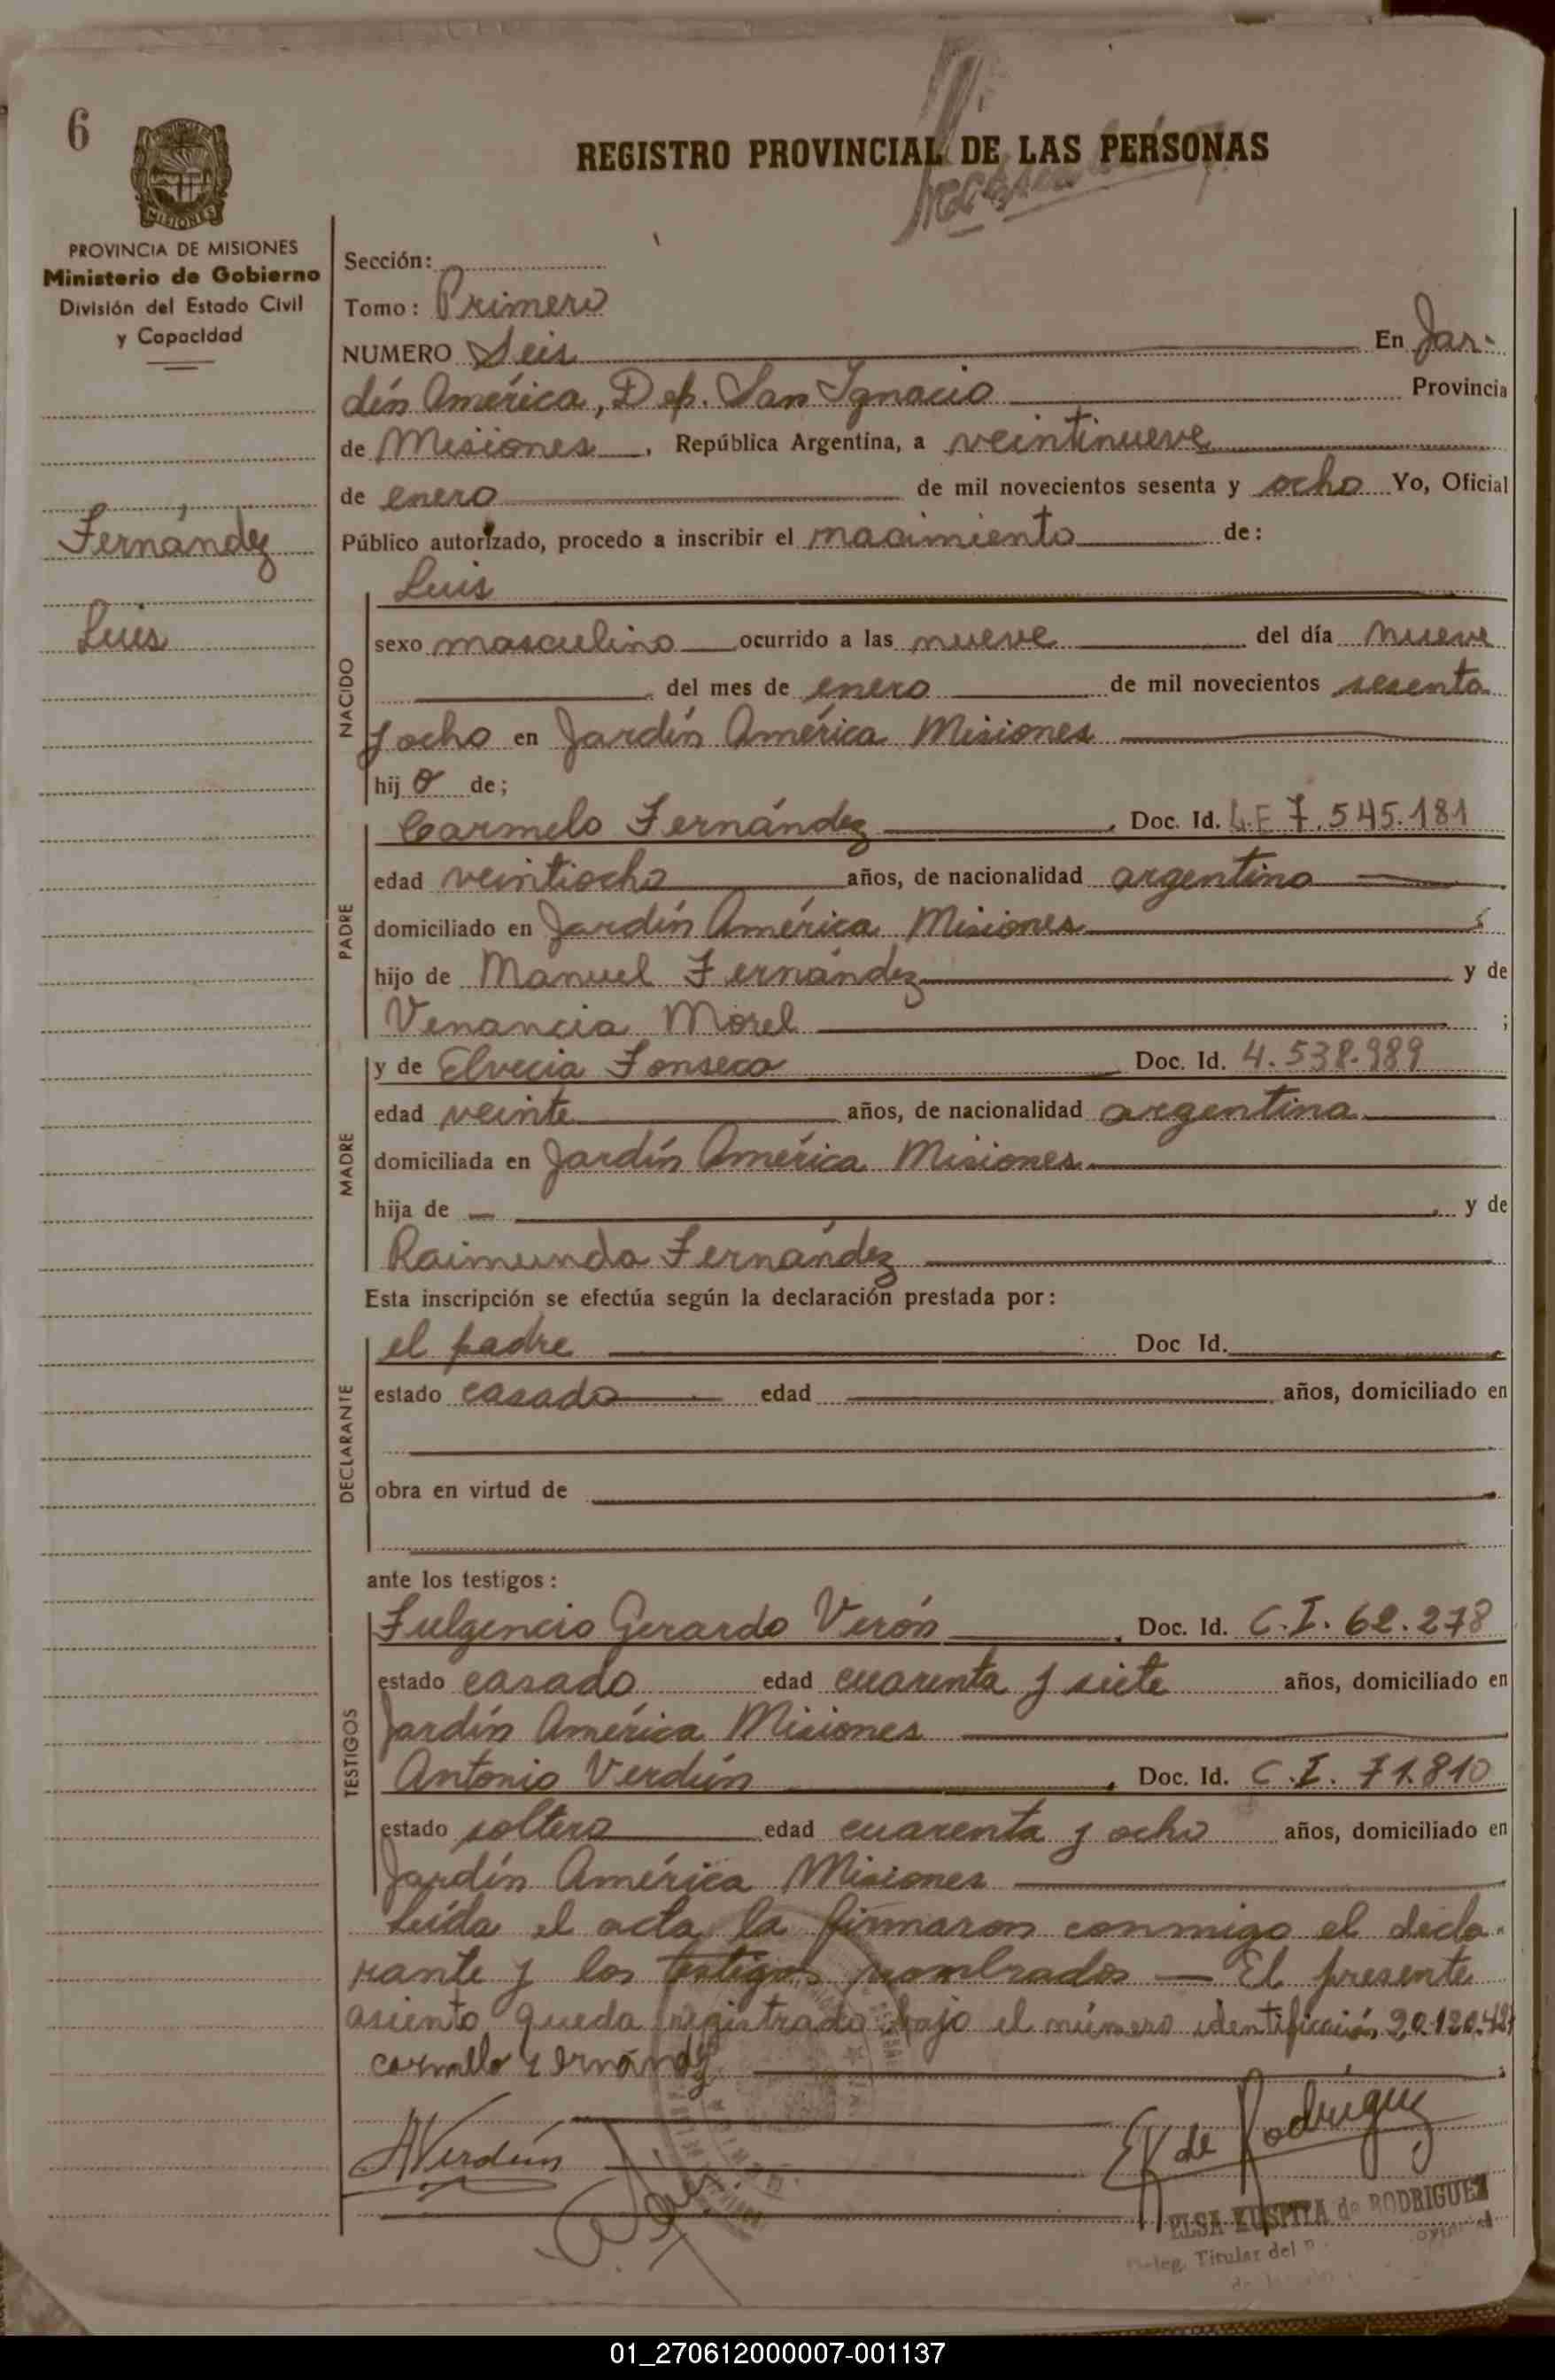 6
REGISTRO PROVINCIAL DE LAS PERSONAS
PROVINCIA DE MISIONES
Ministerio de Gobierno
División del Estado Civil
y Capacidad
Fernández
Luis
Sección:
Tomo: Primero
NUMERO Seis En Jar-
dín América, Dep. San Ignacio Provincia
de Misiones, República Argentina, a veintinueve
de enero de mil novecientos sesenta y ocho Yo, Oficial
Público autorizado, procedo a inscribir el nacimiento de:
NACIDO
Luis
sexo masculino ocurrido a las nueve del día nueve
del mes de enero de mil novecientos sesenta
y ocho en Jardín América Misiones
hijo de;
PADRE
Carmelo Fernández, Doc. Id. L.E 7.545.181
edad veintiocho años, de nacionalidad argentino
domiciliado en Jardín América Misiones
hijo de Manuel Fernández y de
Venancia Morel ;
MADRE
y de Elvecia Fonseca Doc. Id. 4.538.989
edad veinte años, de nacionalidad argentina
domiciliada en Jardín América Misiones
hija de — , y de
Raimunda Fernández
Esta inscripción se efectúa según la declaración prestada por:
DECLARANTE
el padre Doc Id.
estado casado edad años, domiciliado en
obra en virtud de
ante los testigos:
TESTIGOS
Fulgencio Gerardo Verón, Doc. Id. C.I. 62.278
estado casado edad cuarenta y siete años, domiciliado en
Jardín América Misiones
Antonio Verdún, Doc. Id. C.I. 71.810
estado soltero edad cuarenta y ocho años, domiciliado en
Jardín América Misiones
Leída el acta la firmaron conmigo el decla-
rante y los testigos nombrados — El presente
asiento queda registrado bajo el número identificación 20.120.42
Carmelo Fernández
AVerdún
EK de Rodríguez
ELSA KUSPITA de RODRIGUEZ
Deleg. Titular del
01_270612000007-001137